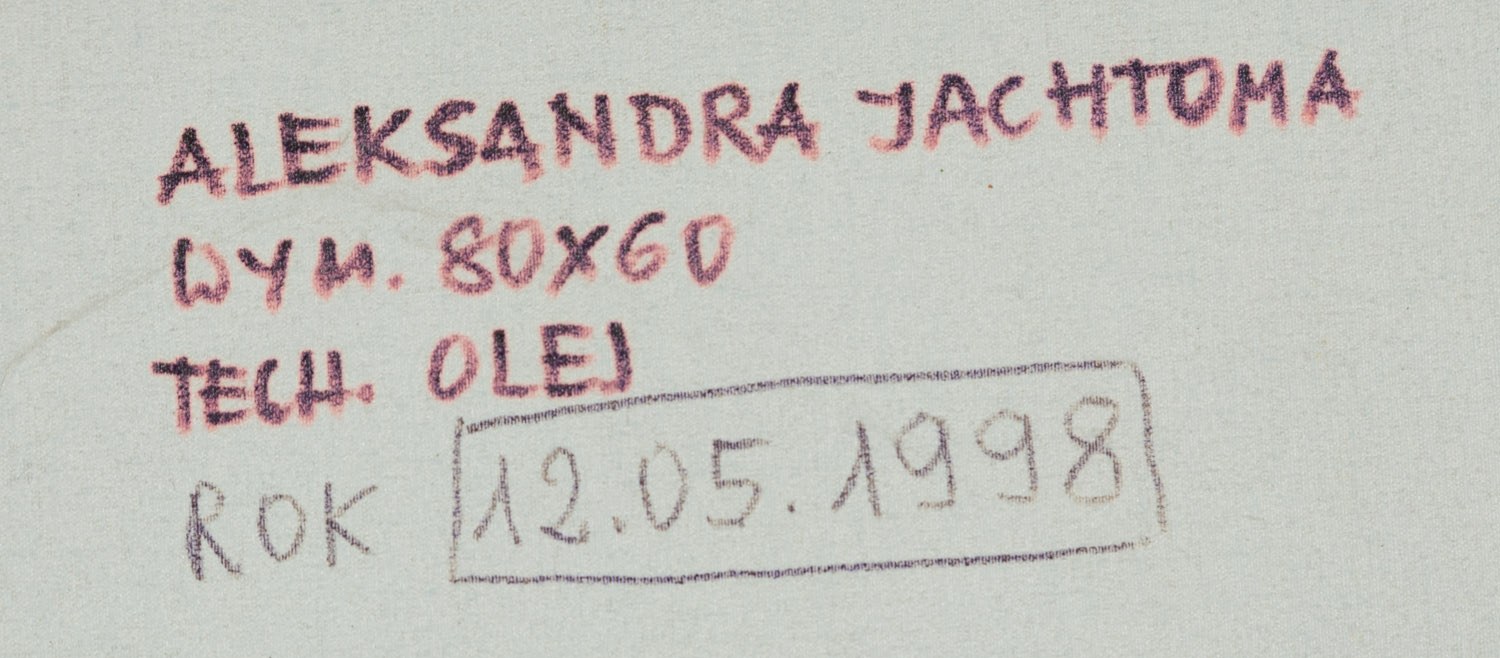 ALEKSANDRA JACHTOMA
WYM. 80X60
TECH. OLEJ
ROK 12.05.1998